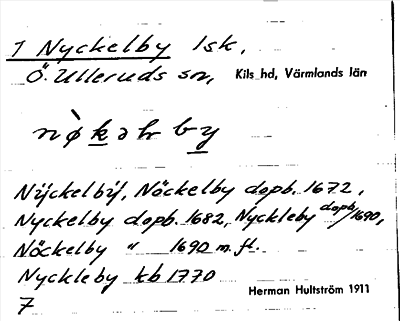 1 Nyckelby 1sk,
Ö. Ulleruds sn, Kils hd, Värmlands län
Nÿckelbÿ, Nöckelby dopb. 1672,
Nyckelby dopb. 1682, Nyckleby dopb/1690,
Nöckelby " 1690 m.fl.
Nyckleby kb 1770
7 Herman Hultström 1911